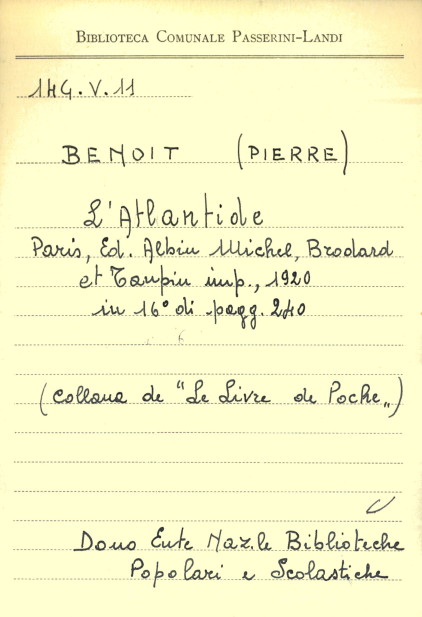 BIBLIOTECA COMUNALE PASSERINI-LANDI
14G.V.11
BENOIT (PIERRE)
L'Atlantide
Paris, Ed. Albin Michel, Brodard
et Taupin imp., 1920
in 16° di pagg. 240
(collana de "Le Livre de Poche„)
Dono Ente Naz.le Biblioteche
Popolari e Scolastiche